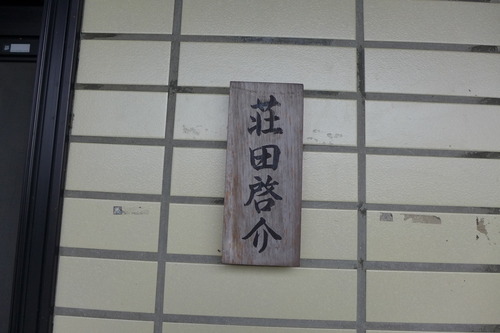 荘田啓介